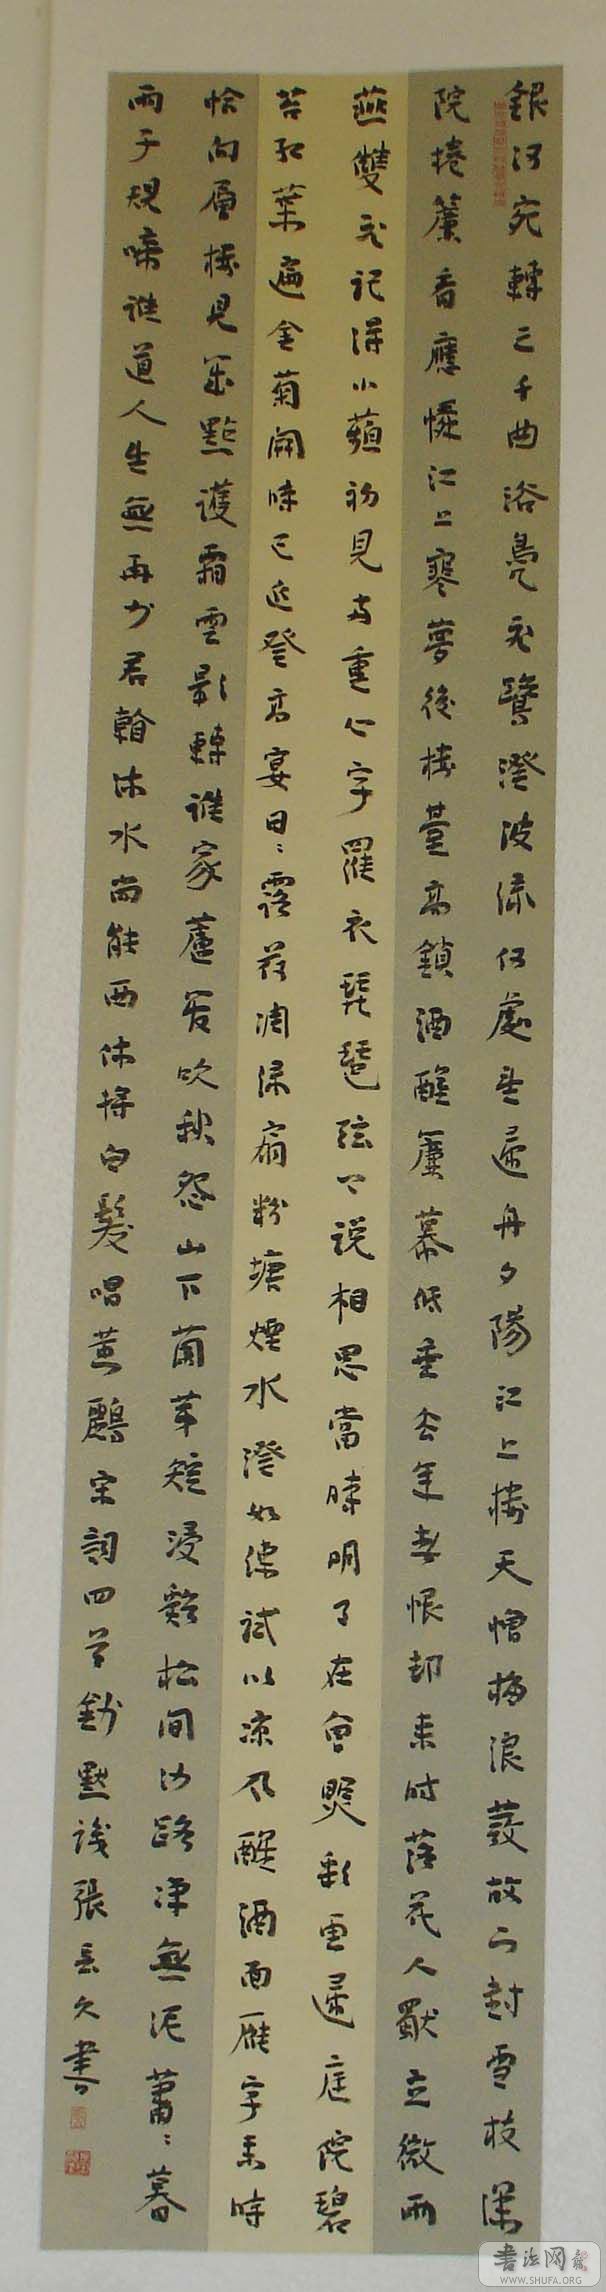 銀河宛轉三千曲浴鳧飛鷺澄波綠何處是歸舟夕陽江上樓天憎梅浪發故下封雪枝深
院捲簾看應憐江上寒夢後樓臺高鎖酒醒簾幕低垂去年春恨却來時落花人獨立微雨
燕雙飛記得小蘋初見兩重心字羅衣琵琶弦上說相思當時明月在曾照彩雲歸庭院碧
苔紅葉遍金菊開時已近登高宴日々露荷凋綠扇粉塘煙水澄如練試以凉風醒酒面雁字來時
恰向層樓見幾點護霜雲影轉誰家蘆管吹秋怨山下蘭芽短浸谿松間沙路淨無泥蕭々暮
雨子規啼誰道人生無再少君看流水尚能西休將白髮唱黃鷄宋詞四首鈔張久書
書法网
WWW.SHUFA.ORG